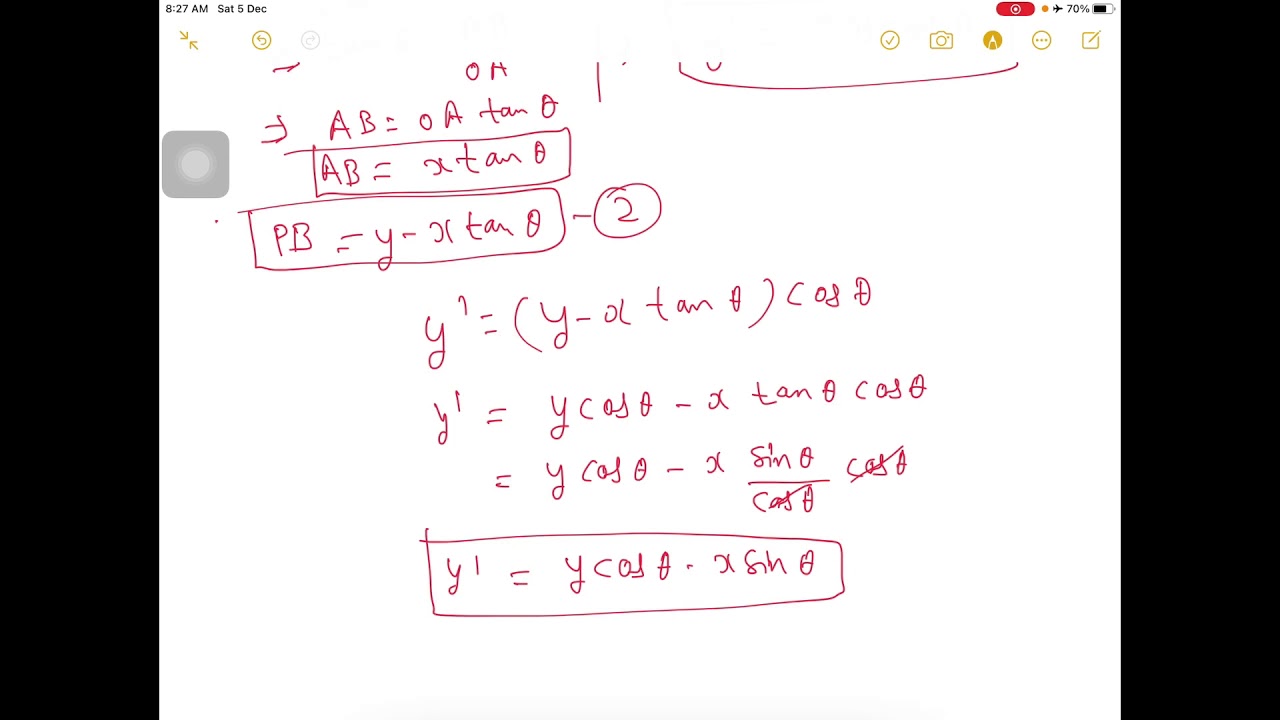 8:27 AM Sat 5 Dec 70%
OA
⇒ AB = OA tan θ
AB = x tan θ
PB = y - x tan θ - 2
y' = (y - x tan θ) cos θ
y' = y cos θ - x tan θ cos θ
= y cos θ - x sin θ / cos θ cos θ
y' = y cos θ - x sin θ